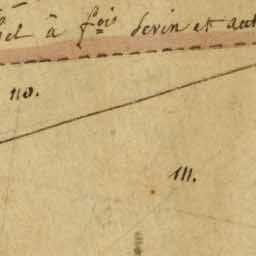 à f.ois Serin et aut
110.
111.